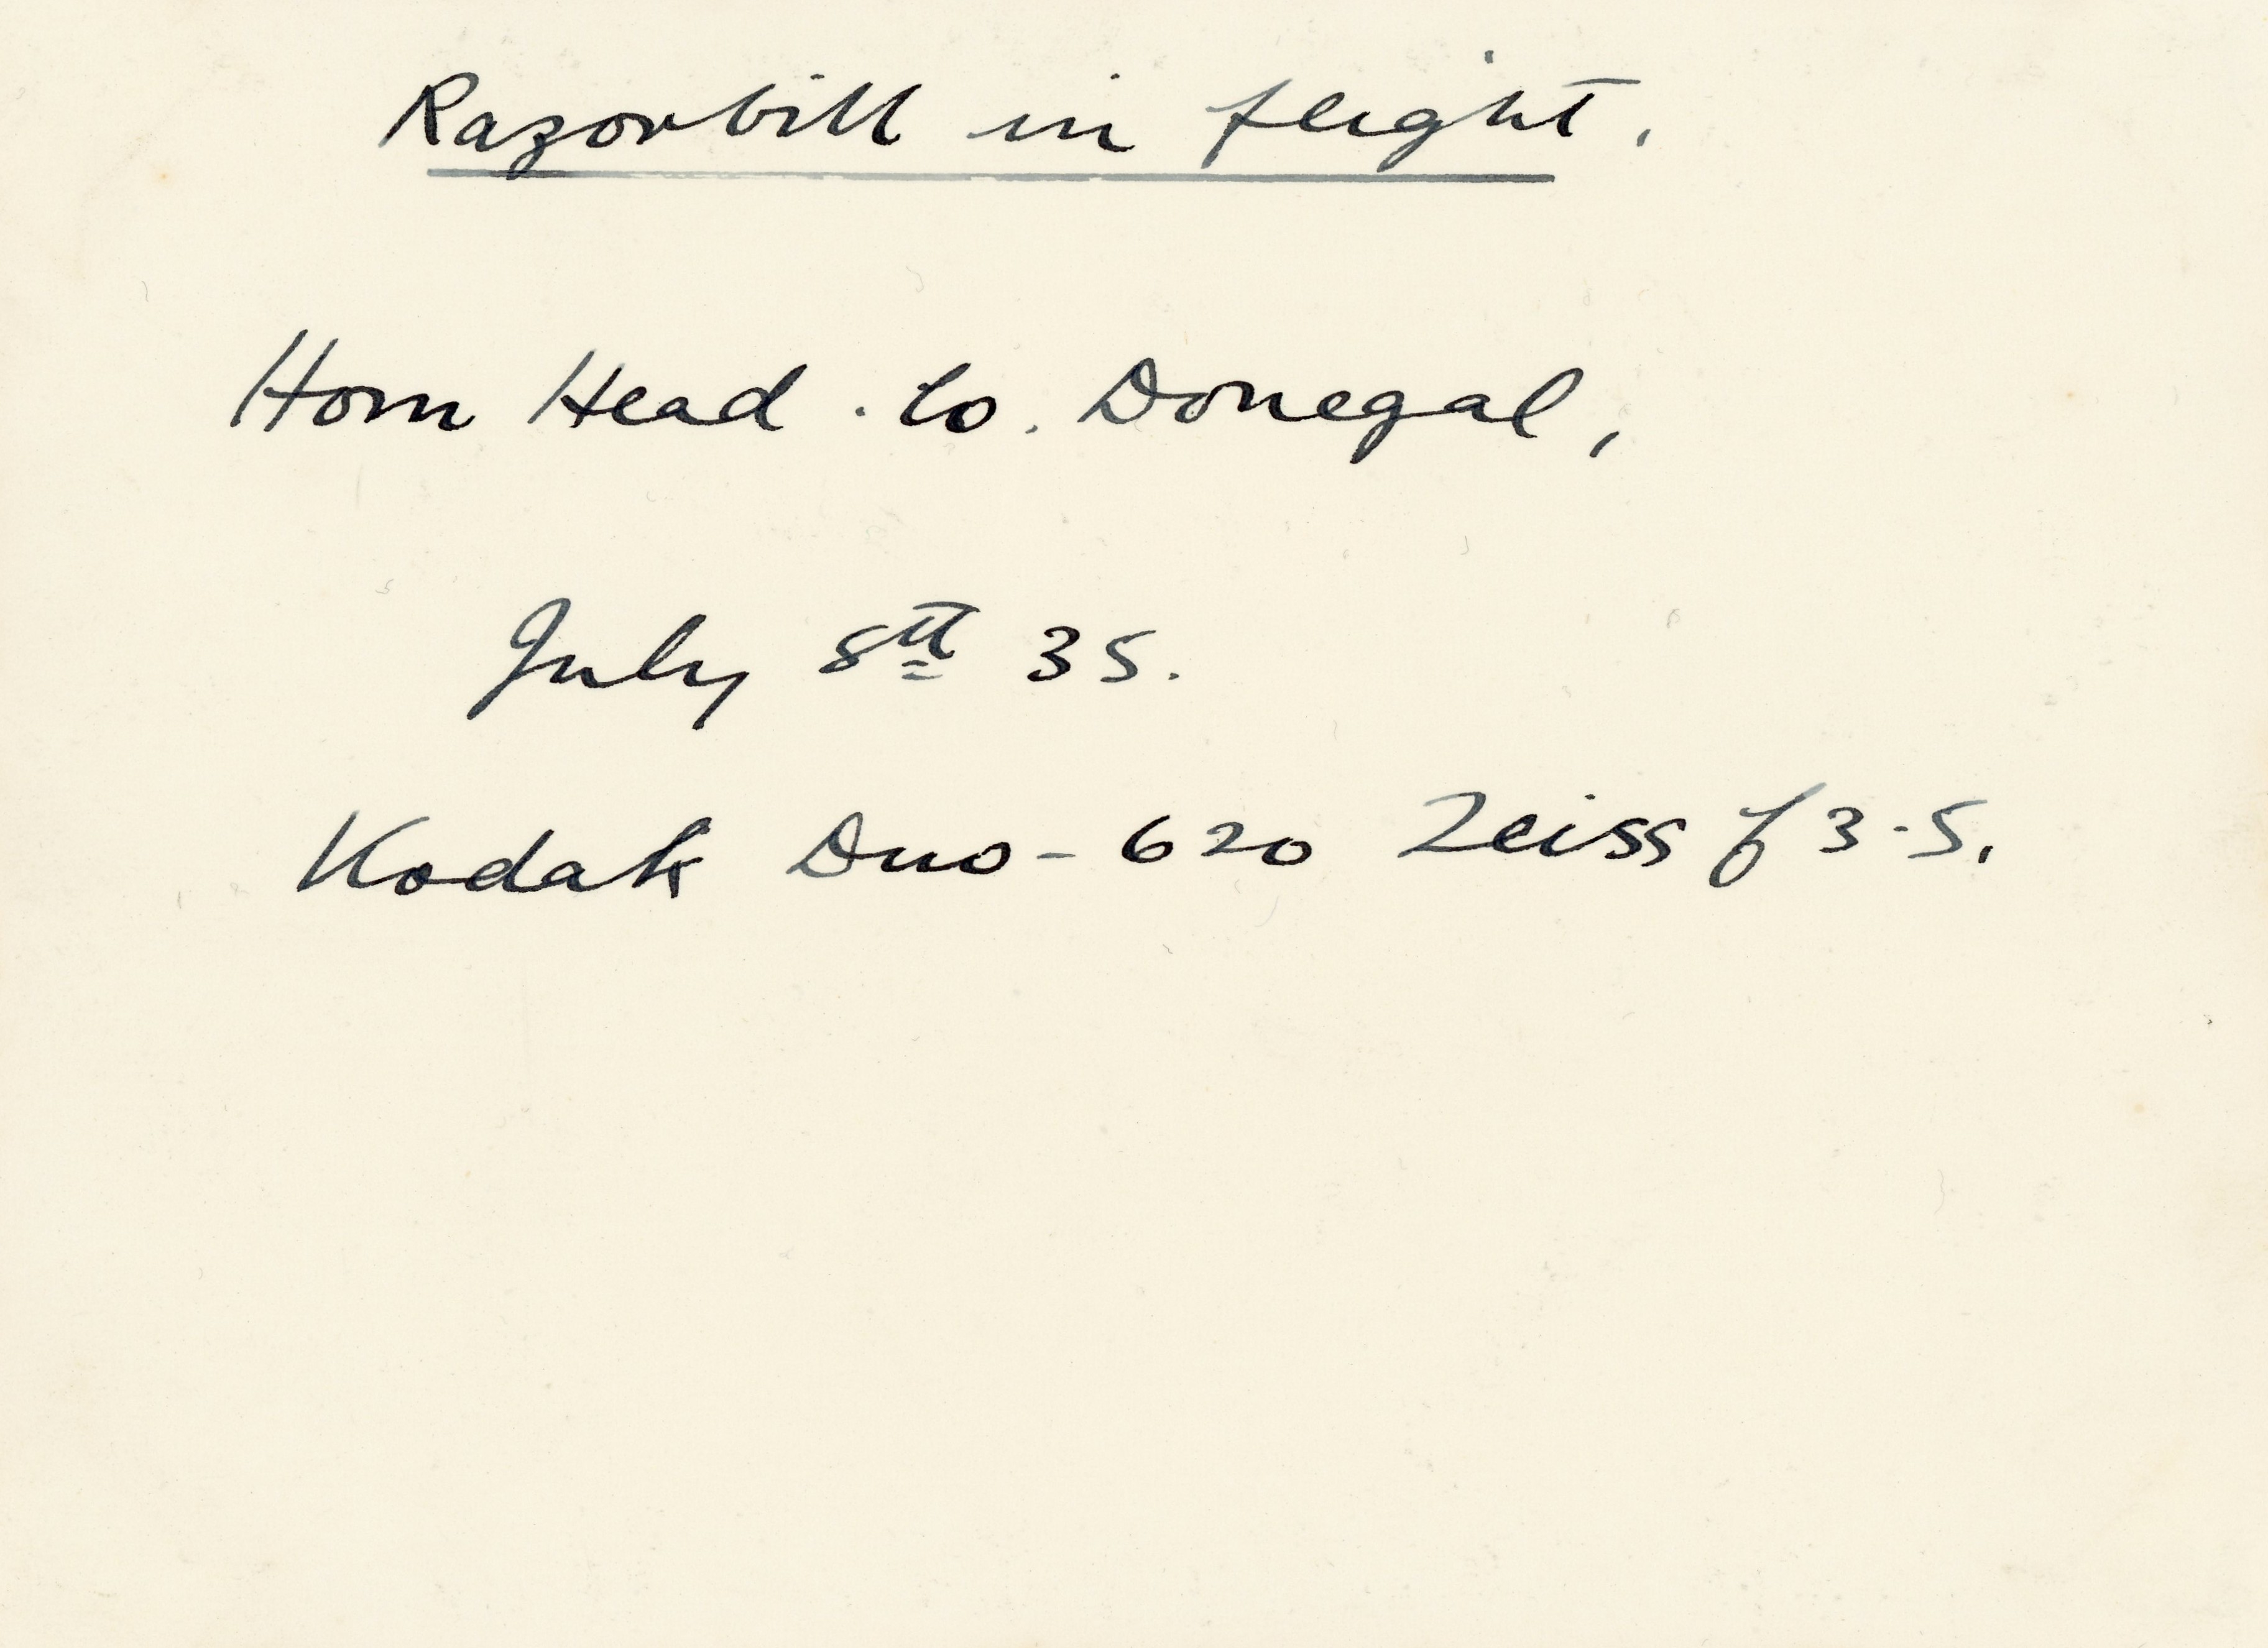 Razorbill in flight.
Horn Head . Co. Donegal,
July 8th 35.
Kodak Duo - 620 Zeiss f 3.5.